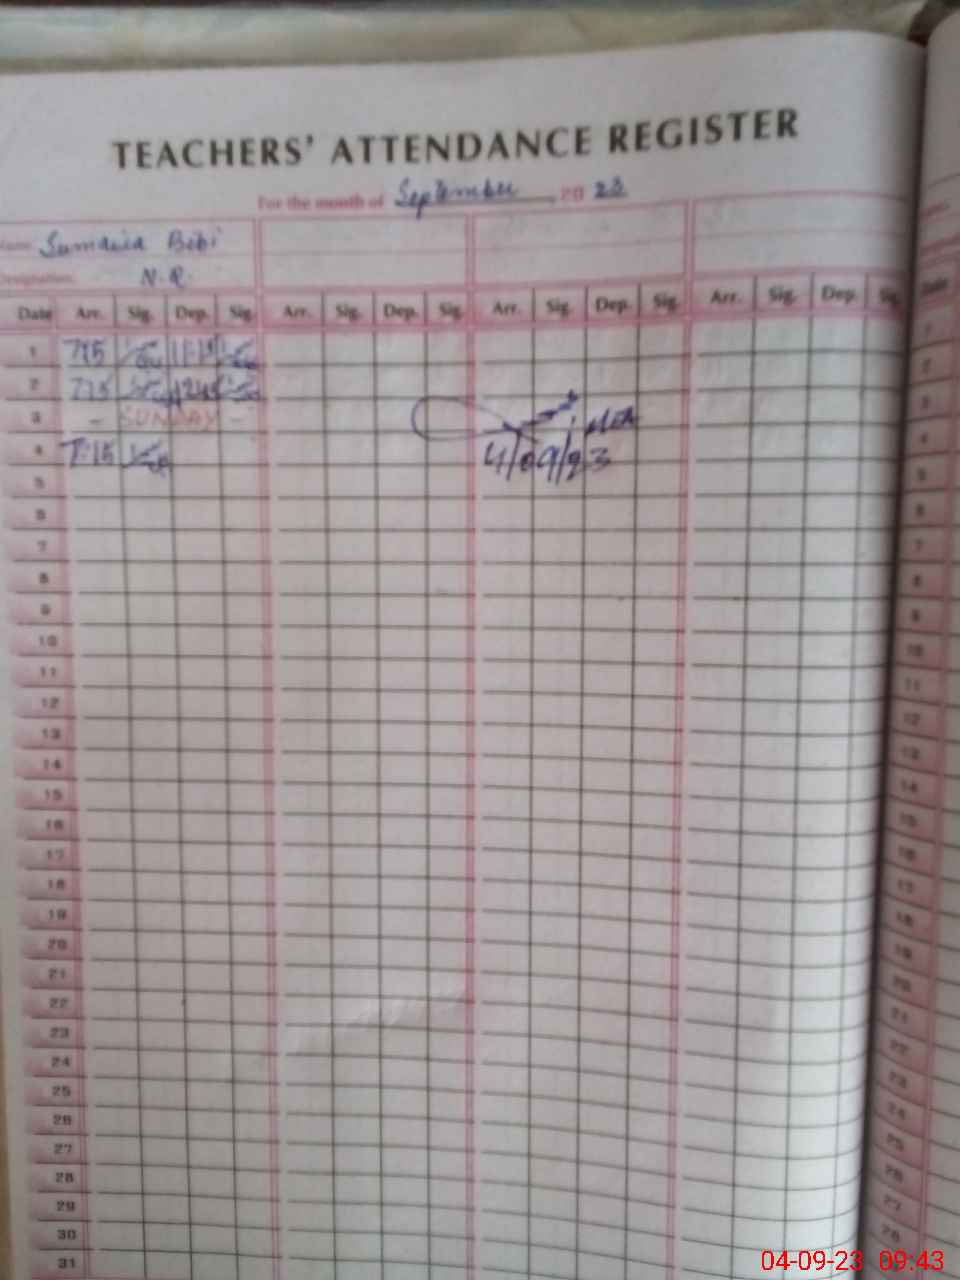 TEACHERS' ATTENDANCE REGISTER
For the month of September, 20 23
Name: Sumaira Bibi
Designation: N.Q.
Date Arr. Sig. Dep. Sig. Arr. Sig. Dep. Sig. Arr. Sig. Dep. Sig. Arr. Sig. Dep. Sig.
1 7:15 11:15
2 7:15 12:45
3 - SUNDAY -
4 7:15
4/09/23
5
6
7
8
9
10
11
12
13
14
15
16
17
18
19
20
21
22
23
24
25
26
27
28
29
30
31
Date
1
2
3
4
5
6
7
8
9
10
11
12
13
14
15
16
17
18
19
20
21
22
23
24
25
26
27
28
04-09-23 09:43